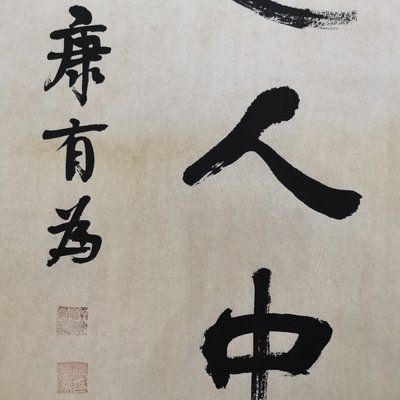 人中
康有為